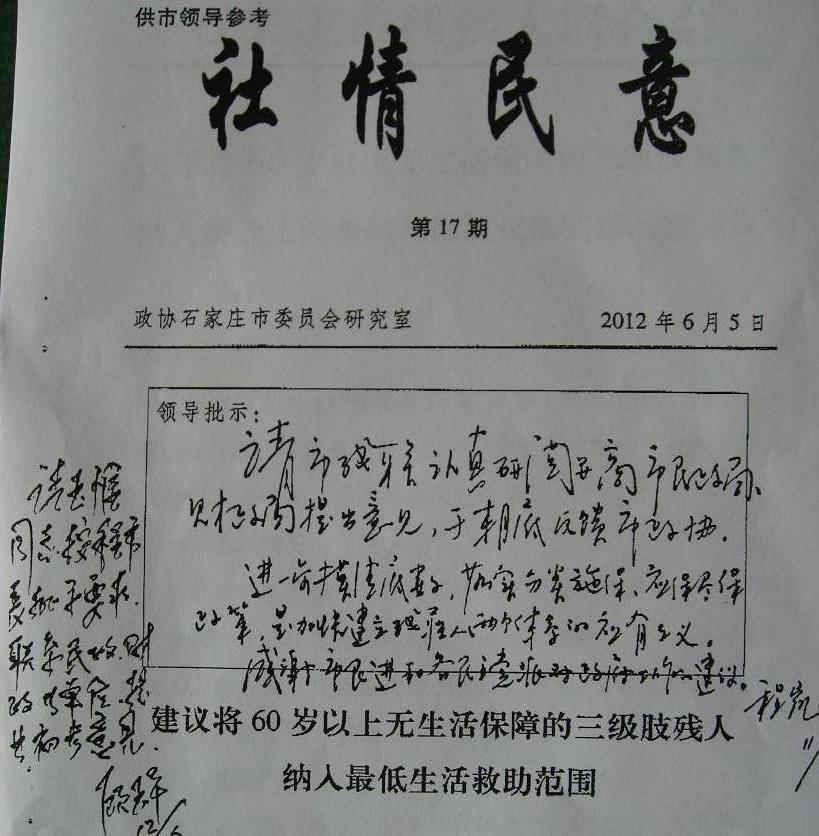 供市领导参考
社情民意
第17期
政协石家庄市委员会研究室 2012年6月5日
领导批示：
请市残联认真研阅并商市民政局、
财政局提出意见，于期底反馈市政协．
进一步摸清底数，落实分类施保、应保尽保
政策，是加快建立残疾人两个体系的应有之义。
感谢市民进和各民主党派对政府工作的建议。
程凯
11/
同志按程市
长批示要求．
联系民政.财
政等单位.提
出初步意见.
12/6
建议将60岁以上无生活保障的三级肢残人
纳入最低生活救助范围